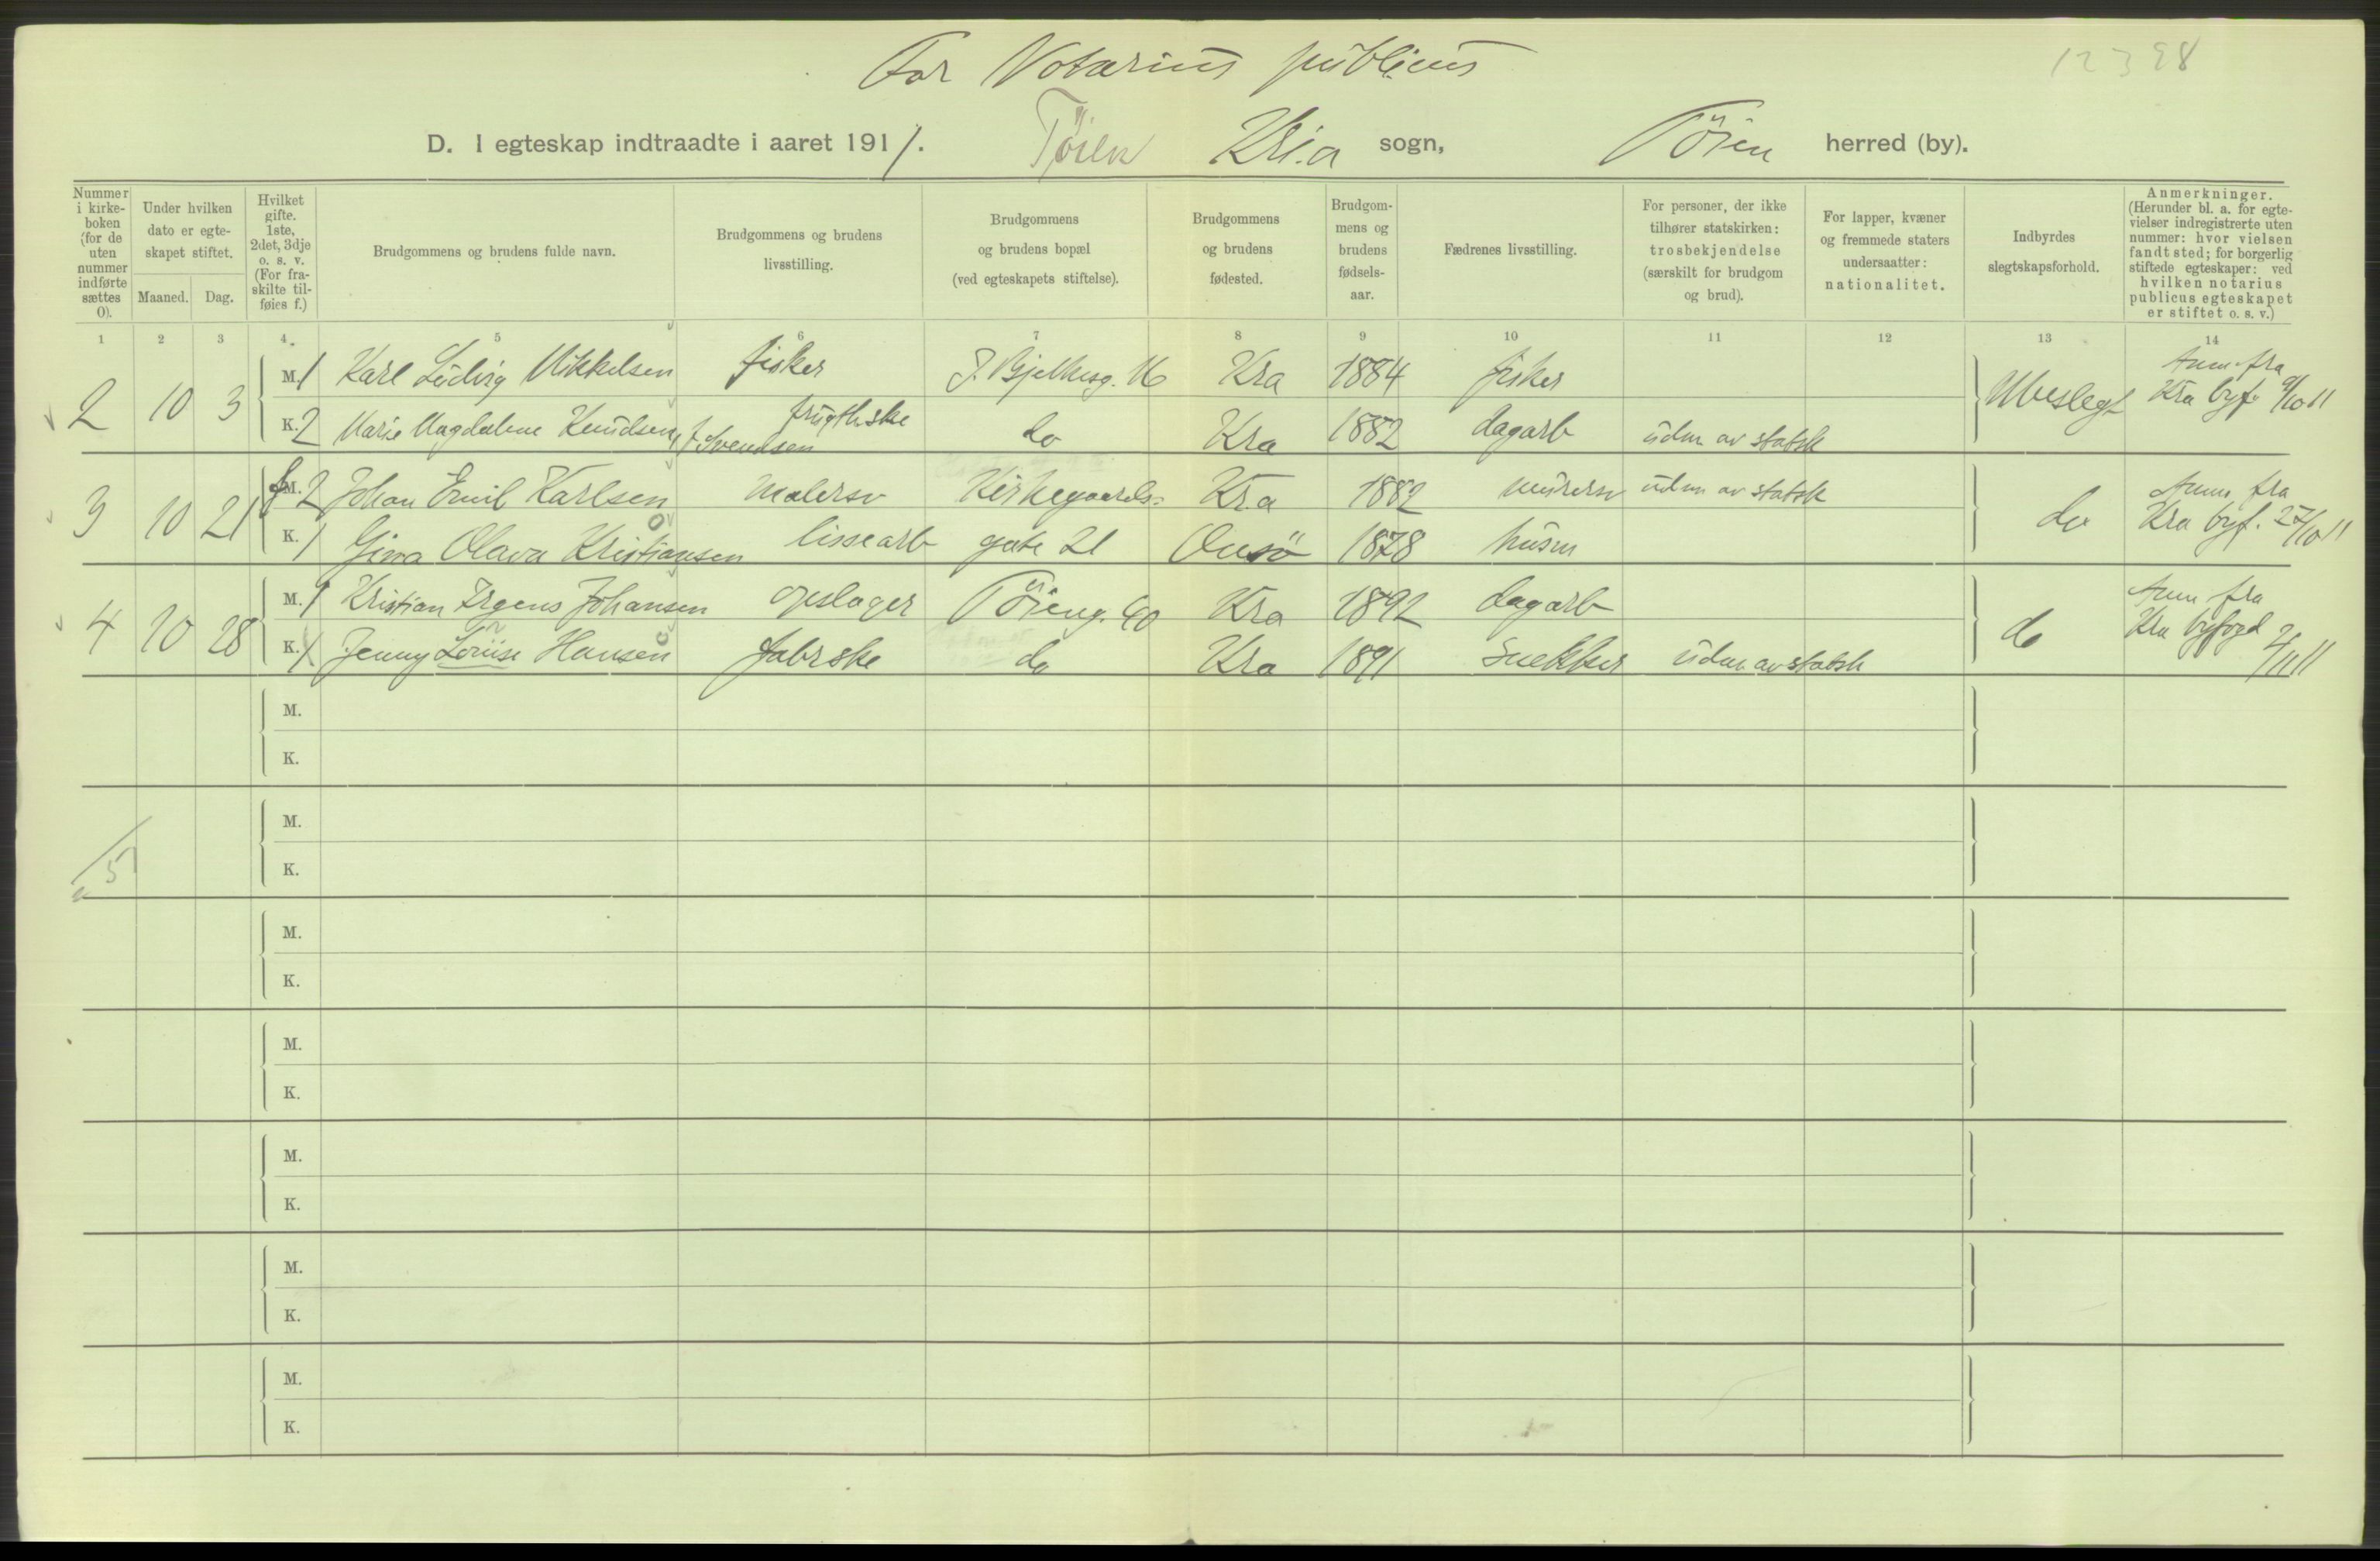 For Notarius publicus
12398
D. I egteskap indtraadte i aaret 1911. Töien Kr.a sogn, Töien herred (by).
Nummer i kirkeboken (for de uten nummer indførte sættes 0).
Under hvilken dato er egteskapet stiftet.
Maaned. Dag.
Hvilket gifte. 1ste, 2det, 3dje o. s. v. (For fraskilte tilføies f.)
Brudgommens og brudens fulde navn.
Brudgommens og brudens livsstilling.
Brudgommens og brudens bopæl (ved egteskapets stiftelse).
Brudgommens og brudens fødested.
Brudgommens og brudens fødselsaar.
Fædrenes livsstilling.
For personer, der ikke tilhører statskirken: trosbekjendelse (særskilt for brudgom og brud).
For lapper, kvæner og fremmede staters undersaatter: nationalitet.
Indbyrdes slegtskapsforhold.
Anmerkninger. (Herunder bl. a. for egtevielser indregistrerte uten nummer: hvor vielsen fandt sted; for borgerlig stiftede egteskaper: ved hvilken notarius publicus egteskapet er stiftet o. s. v.)
1 2 3 4. 5 6 7 8 9 10 11 12 13 14
2 10 3 M. 1 Karl Ludvig Mikkelsen fisker J. Bjelkesg. 16 Kra 1884 fisker Ubeslegt Anm. fra Kra byf. 9/10 11
K. 2 Marie Magdalene Knudsen, f Svendsen frugthske do Kra 1882 dagarb udm av statsk
3 10 21 f M. 2 Johan Emil Karlsen malersv Kirkegaards- Kr.a 1882 murersv udm av statsk do Anm. fra Kra byf. 27/10 11
K. 1 Gina Olava Kristiansen lissearb gate 21 Onsö 1878 husm
4 10 28 M. 1 Kristian Irgens Johansen opslager Töieng. 40 Kra 1892 dagarb do Anm fra Kra byfogd 2/11 11
K. 1 Jenny Louise Hansen fabrske do Kra 1891 Snekker udm av statsk
M.
K.
M.
5
K.
M.
K.
M.
K.
M.
K.
M.
K.
M.
K.